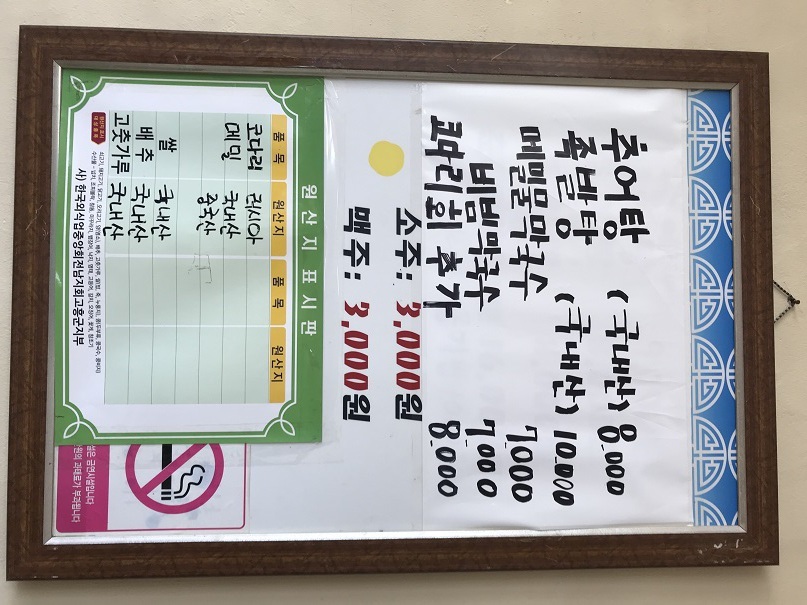 추어탕 (국내산) 8.000
족발탕 (국내산) 10.000
메밀물막국수 7,000
비빔막국수 7.000
코다리회 추가 8.000
소주: 3,000원
맥주: 3,000원
원산지 표시판
품목 원산지 품목 원산지
코다리 러시아
메밀 국내산 중국산
쌀 국내산
배추 국내산
고춧가루 국내산
사) 한국외식업중앙회전남지회고흥군지부